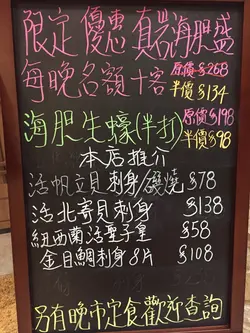 限定優惠真岩海胆盛
每晚名額十客 原價$268
半價$134
海胆生蠔(半打) 原價$198
半價$98
本店推介
活帆立貝刺身/磯燒 $78
活北寄貝刺身 $138
紐西蘭活聖子皇 $58
金目鯛刺身8片 $108
另有晚市定食歡迎查詢